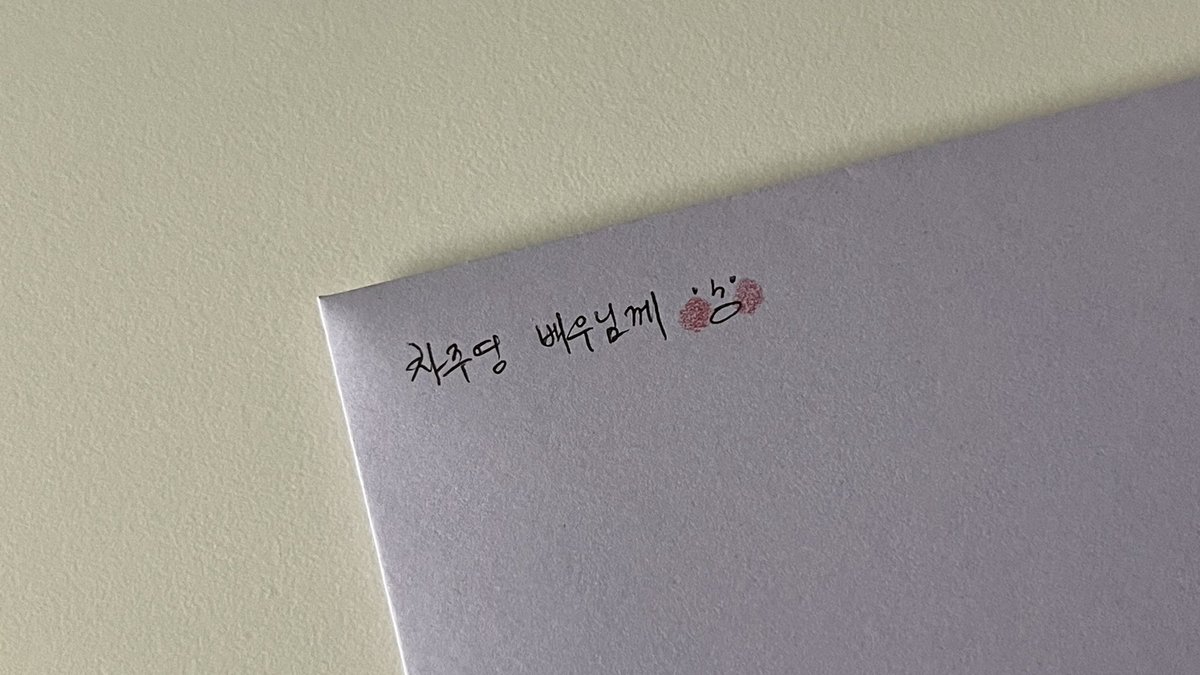 차주영 배우님께